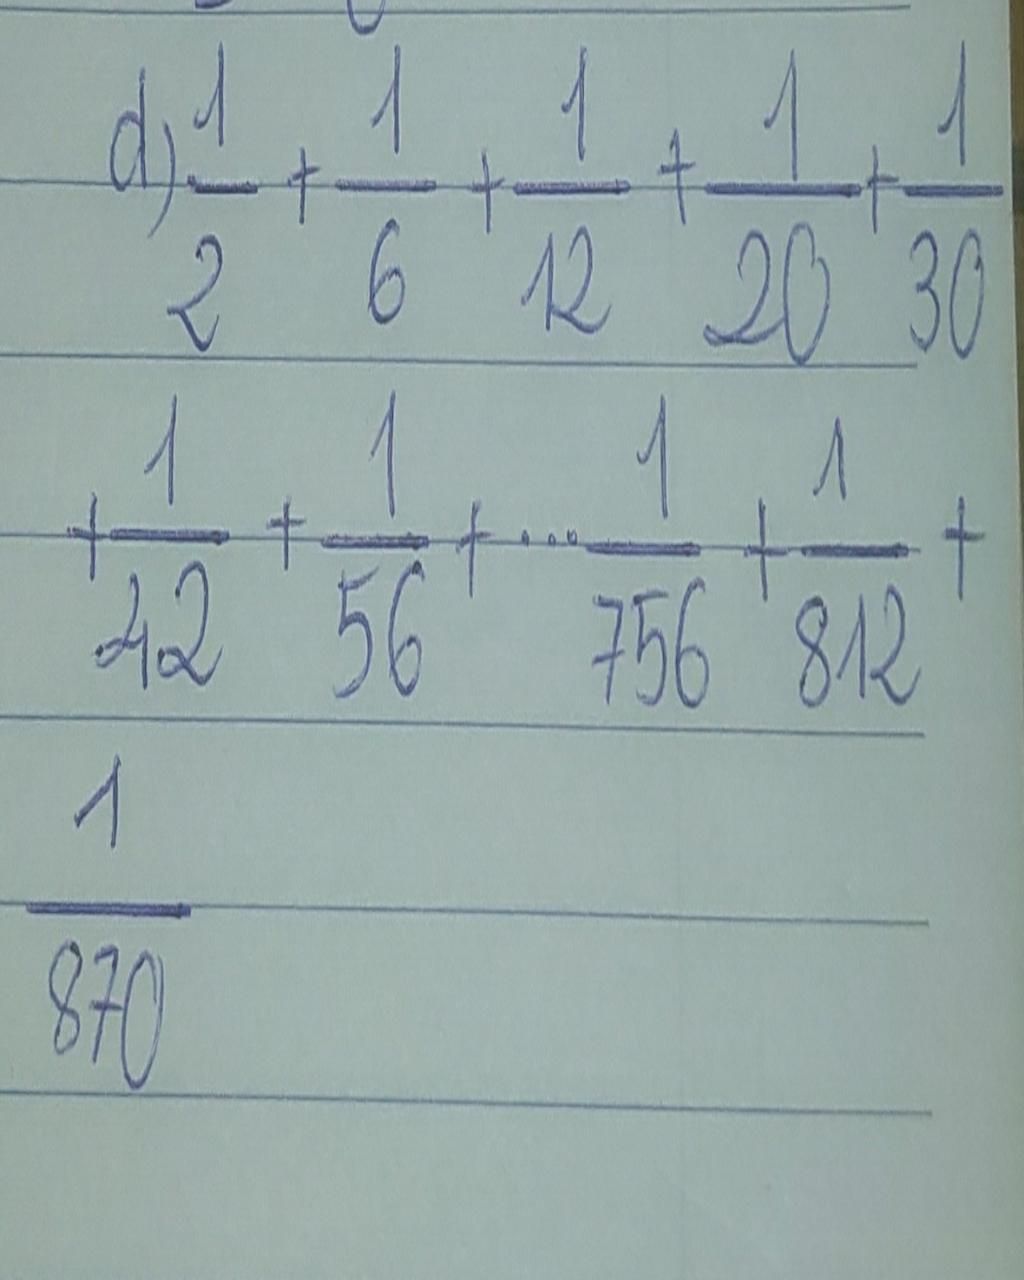 d) 1/2 + 1/6 + 1/12 + 1/20 + 1/30
+ 1/42 + 1/56 + ... 1/756 + 1/812 +
1/870